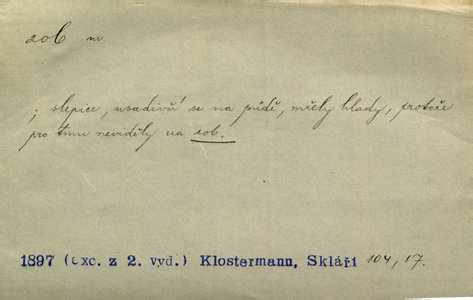 zob m
; slepice, usadivší se na půdě, mřely hlady, protože
pro tmu neviděly na zob.
1897 (exc. z 2. vyd.) Klostermann, Skláři 104, 17.